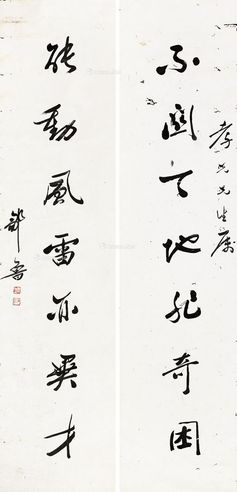 孝先先生屬
不關天地非奇困
能動風雷亦異才
鄒魯